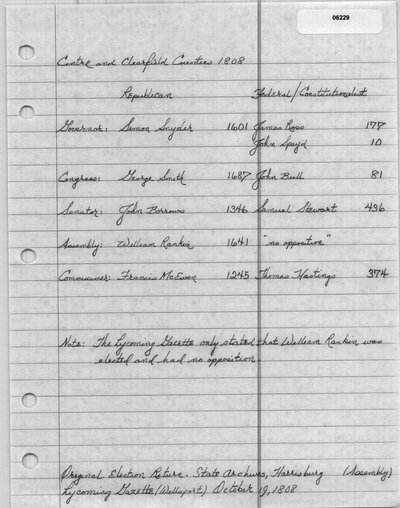 06229
Centre and Clearfield Counties 1808
Republican Federal/Constitutionalist
Governor: Simon Snyder 1601 James Ross 177
John Spayd 10
Congress: George Smith 1687 John Bull 81
Senator: John Borrows 1346 Samuel Stewart 436
Assembly: William Rankin 1641 "no opposition"
Commissioner: Francis McEwen 1245 Thomas Hastings 374
Note: The Lycoming Gazette only stated that William Rankin was
elected and had no opposition.
Original Election Return. State Archives, Harrisburg (Assembly)
Lycoming Gazette (Wmsport) October 19, 1808